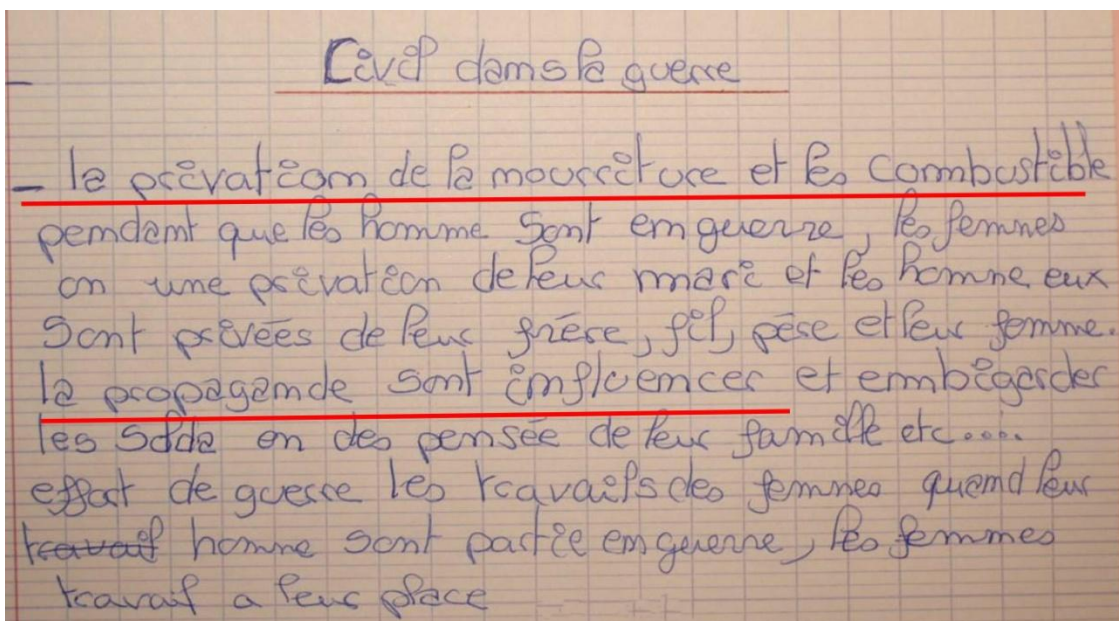 Civil dans la guerre
- la privation de la nourriture et les commbustible
pendant que les homme sont en guerre, les femmes
on une privation de leur mari et les homme eux
sont privées de leur frère, fil, père et leur femme.
la propagande sont influencer et emmbigarder
les solda on des pensée de leur famille etc.....
effort de guerre les travails des femmes quand leur
travail homme sont partie en guerre, les femmes
travail a leur place